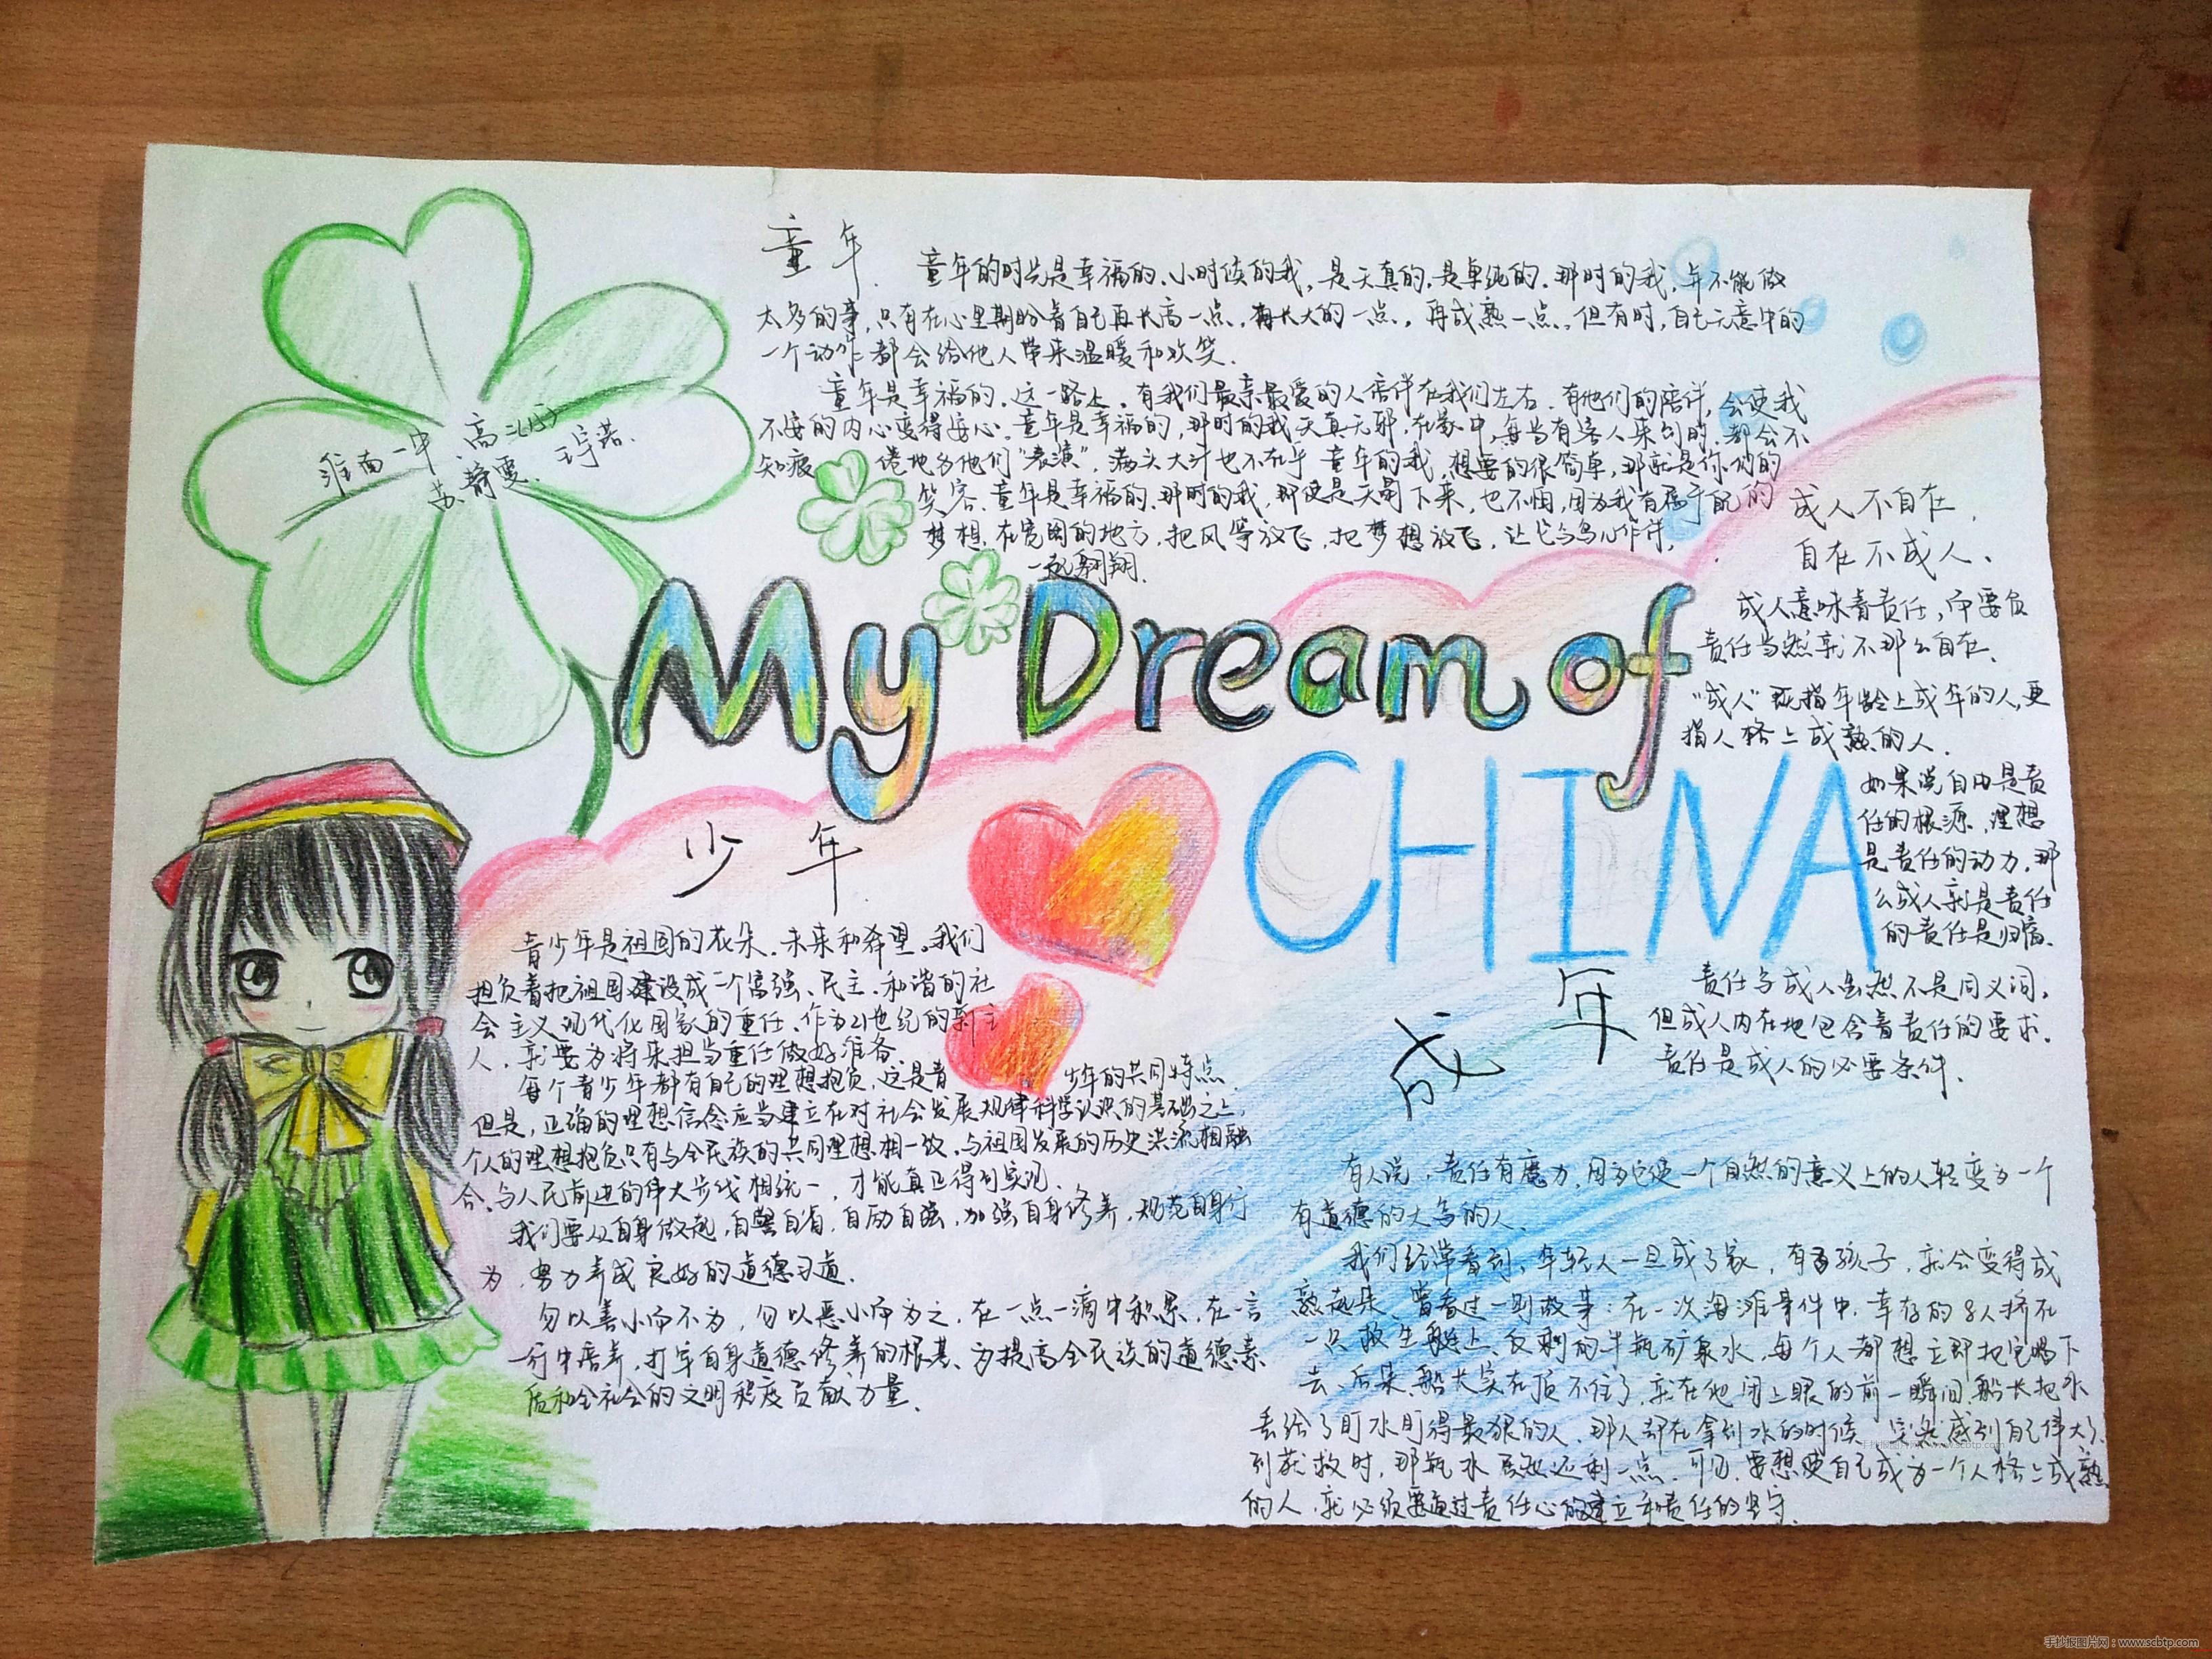 淮南一中 高二(15)
苏静雯 王宇诺
童年
童年的时光是幸福的、小时候的我,是天真的,是单纯的.那时的我,并不能做
太多的事,只有在心里期盼着自己再长高一点,再长大的一点,再成熟一点.但有时,自己无意中的
一个动作都会给他人带来温暖和欢笑.
童年是幸福的.这一路上,有我们最亲最爱的人陪伴在我们左右.有他们的陪伴,会使我
不安的内心变得安心.童年是幸福的,那时的我天真无邪,在家中,每当有客人来到时,都会不
知疲倦地为他们"表演",满头大汗也不在乎 童年的我,想要的很简单,那就是你们的
笑容.童年是幸福的.那时的我,那使是天蹋下来,也不怕,因为我有属于自己的
梦想.在宽阔的地方,把风筝放飞,把梦想放飞,让它与鸟儿作伴,
一起翱翔.
My Dream of
CHINA
少年
青少年是祖国的花朵、未来和希望。我们
担负着把祖国建设成一个富强、民主、和谐的社
会主义现代化国家的重任、作为21世纪的新主
人,就要为将来担当重任做好准备.
每个青少年都有自己的理想抱负,这是青少年的共同特点.
但是,正确的理想信念应当建立在对社会发展规律科学认识的基础之上,
个人的理想抱负只有与全民族的共同理想相一致、与祖国发展的历史洪流相融
合、与人民前进的伟大步伐相统一,才能真正得到实现.
我们要从自身做起,自警自省,自励自强,加强自身修养,规范自身行
为,努力养成良好的道德习道.
勿以善小而不为,勿以恶小而为之,在一点一滴中积累,在一言
一行中培养,打牢自身道德修养的根基、为提高全民族的道德素
质和全社会的文明程度贡献力量.
成人不自在,
自在不成人、
成人意味着责任,而要负
责任当然就不那么自在.
"成人"既指年龄上成年的人,更
指人格上成熟的人.
如果说自由是责
任的根源,理想
是责任的动力,那
么成人就是责任
的责任是归宿.
成年
责任与成人虽然不是同义词,
但成人内在地包含着责任的要求.
责任是成人的必要条件.
有人说,责任有魔力,因为它使一个自然的意义上的人轻变为一个
有道德的大写的人.
我们经常看到、年轻人一旦成了家,有了孩子,就会变得成
熟起来、曾看过一则故事:在一次海难事件中,幸存的8人挤在
一只救生艇上、仅剩的半瓶矿泉水,每个人都想立即把它喝下
去、后来、船长实在顶不住了,就在他闭上眼的前一瞬间,船长把水
丢给了盯水盯得最狠的人、那人却在拿到水的时候 突然感到自己伟大了、
到获救时,那瓶水居然还剩一点.可见,要想使自己成为一个人格上成熟
的人,就必须要通过责任心的建立和责任的坚守.
手抄报图片网:www.scbtp.com
手抄报图片网:www.scbtp.com